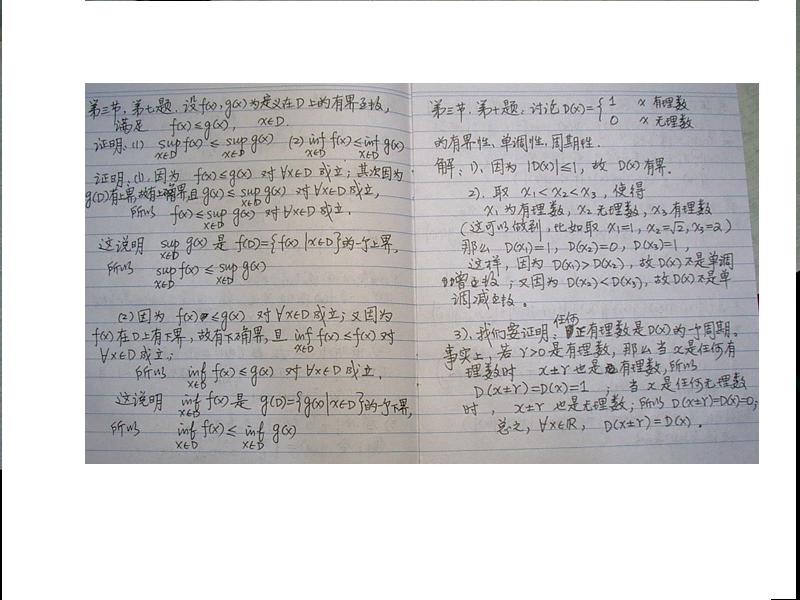 第三节.第七题.设f(x),g(x)为定义在D上的有界函数,
满足 f(x)≤g(x), x∈D.
证明:(1) sup_{x∈D} f(x) ≤ sup_{x∈D} g(x) (2) inf_{x∈D} f(x) ≤ inf_{x∈D} g(x)
证明:(1).因为 f(x)≤g(x) 对∀x∈D成立;其次因为
g(D)有上界,故有上确界,且 g(x)≤ sup_{x∈D} g(x) 对∀x∈D成立,
所以 f(x)≤ sup_{x∈D} g(x) 对∀x∈D成立.
这说明 sup_{x∈D} g(x) 是 f(D)={f(x)|x∈D}的一个上界,
所以 sup_{x∈D} f(x) ≤ sup_{x∈D} g(x)
(2)因为 f(x)≤g(x) 对∀x∈D成立;又因为
f(x)在D上有下界,故有下确界,且 inf_{x∈D} f(x)≤f(x)对
∀x∈D成立;
所以 inf_{x∈D} f(x)≤g(x) 对∀x∈D成立.
这说明 inf_{x∈D} f(x)是 g(D)={g(x)|x∈D}的一个下界,
所以 inf_{x∈D} f(x) ≤ inf_{x∈D} g(x)
第三节.第十题.讨论D(x)={ 1 x有理数
0 x无理数
的有界性.单调性.周期性.
解:1).因为 |D(x)|≤1, 故 D(x)有界.
2).取 x₁<x₂<x₃, 使得
x₁为有理数,x₂无理数,x₃有理数
(这可以做到,比如取 x₁=1, x₂=√2, x₃=2)
那么 D(x₁)=1, D(x₂)=0, D(x₃)=1,
这样,因为 D(x₁)>D(x₂), 故D(x)不是单调
增函数;又因为D(x₂)<D(x₃),故D(x)不是单
调减函数.
3).我们要证明:任何正有理数是D(x)的一个周期.
事实上,若r>0是有理数,那么当x是任何有
理数时 x±r也是有理数,所以
D(x±r)=D(x)=1 ; 当x是任何无理数
时, x±r也是无理数;所以 D(x±r)=D(x)=0;
总之, ∀x∈R, D(x±r)=D(x).